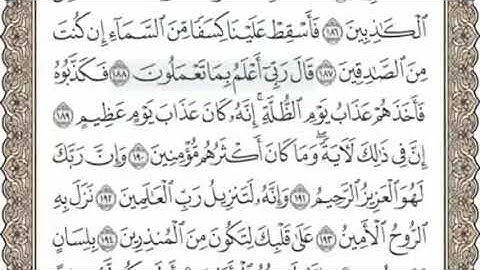 ٱلْكَٰذِبِينَ ١٨٦ فَأَسْقِطْ عَلَيْنَا كِسَفًا مِّنَ ٱلسَّمَآءِ إِن كُنتَ
مِنَ ٱلصَّٰدِقِينَ ١٨٧ قَالَ رَبِّىٓ أَعْلَمُ بِمَا تَعْمَلُونَ ١٨٨ فَكَذَّبُوهُ
فَأَخَذَهُمْ عَذَابُ يَوْمِ ٱلظُّلَّةِ ۚ إِنَّهُۥ كَانَ عَذَابَ يَوْمٍ عَظِيمٍ ١٨٩
إِنَّ فِى ذَٰلِكَ لَءَايَةً ۖ وَمَا كَانَ أَكْثَرُهُم مُّؤْمِنِينَ ١٩٠ وَإِنَّ رَبَّكَ
لَهُوَ ٱلْعَزِيزُ ٱلرَّحِيمُ ١٩١ وَإِنَّهُۥ لَتَنزِيلُ رَبِّ ٱلْعَٰلَمِينَ ١٩٢ نَزَلَ بِهِ
ٱلرُّوحُ ٱلْأَمِينُ ١٩٣ عَلَىٰ قَلْبِكَ لِتَكُونَ مِنَ ٱلْمُنذِرِينَ ١٩٤ بِلِسَانٍ